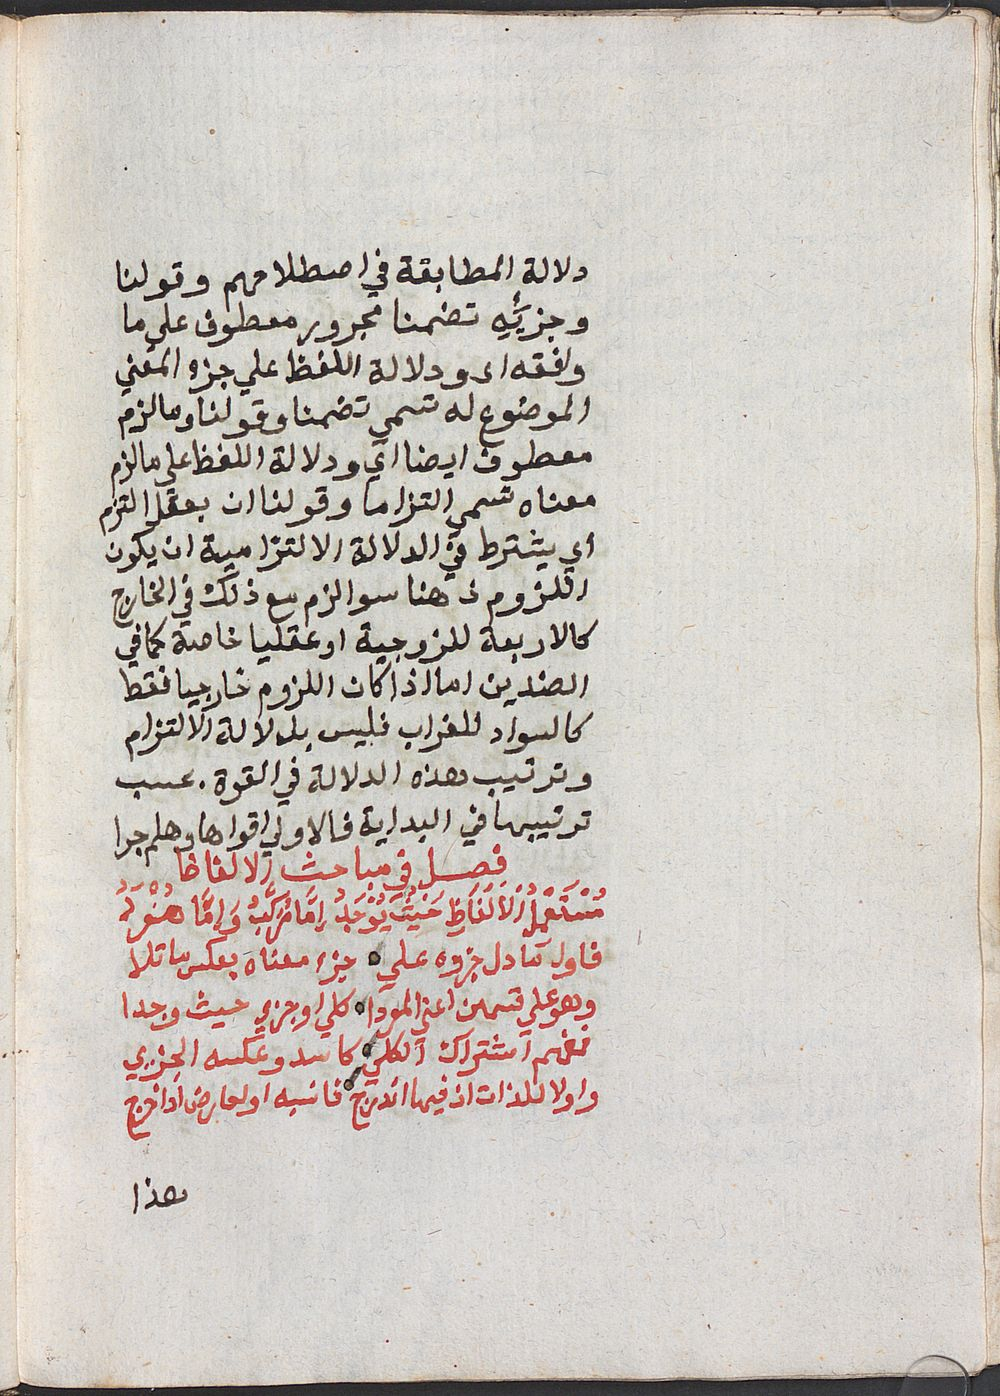 دلالة المطابقة في اصطلاحهم وقولنا
وجزئيه تضمنا مجرور معطوف علي ما
وافقه اي ودلالة اللفظ علي جزء المعني
الموضوع له تسمي تضمنا وقولنا وما لزم
معطوف ايضا اي ودلالة اللفظ علي ما لزم
معناه تسمي التزاما وقولنا ان بعقل التزم
اي يشترط في الدلالة الالتزامية ان يكون
اللزوم ذهنا سوا لزم مع ذلك في الخارج
كالاربعة للزوجية او عقليا خاصة كما في
الضدين اما اذا كان اللزوم خارجيا فقط
كالسواد للغراب فليس بدلالة الالتزام
وترتيب هذه الدلالة في القوة بحسب
ترتيبها في البداية فالاولي اقواها وهلم جرا
فصل في مباحث الالفاظ
مُسْتَعْمَلُ الاَلْفَاظِ حَيْثُ يُوْجَدُ اِمَّا مُرَكَّبٌ وَاِمَّا مُفْرَدُ
فاول ما دل جزؤه علي جزء معناه بعكس ما تلا
وهو علي قسمين اعني المفردا كلي او جزي حيث وجدا
فمفهم اشتراك الكلي كاسد وعكسه الجزيي
واولا للذات ان فيها اندرج فانسبه او لعارض اذا خرج
هذا